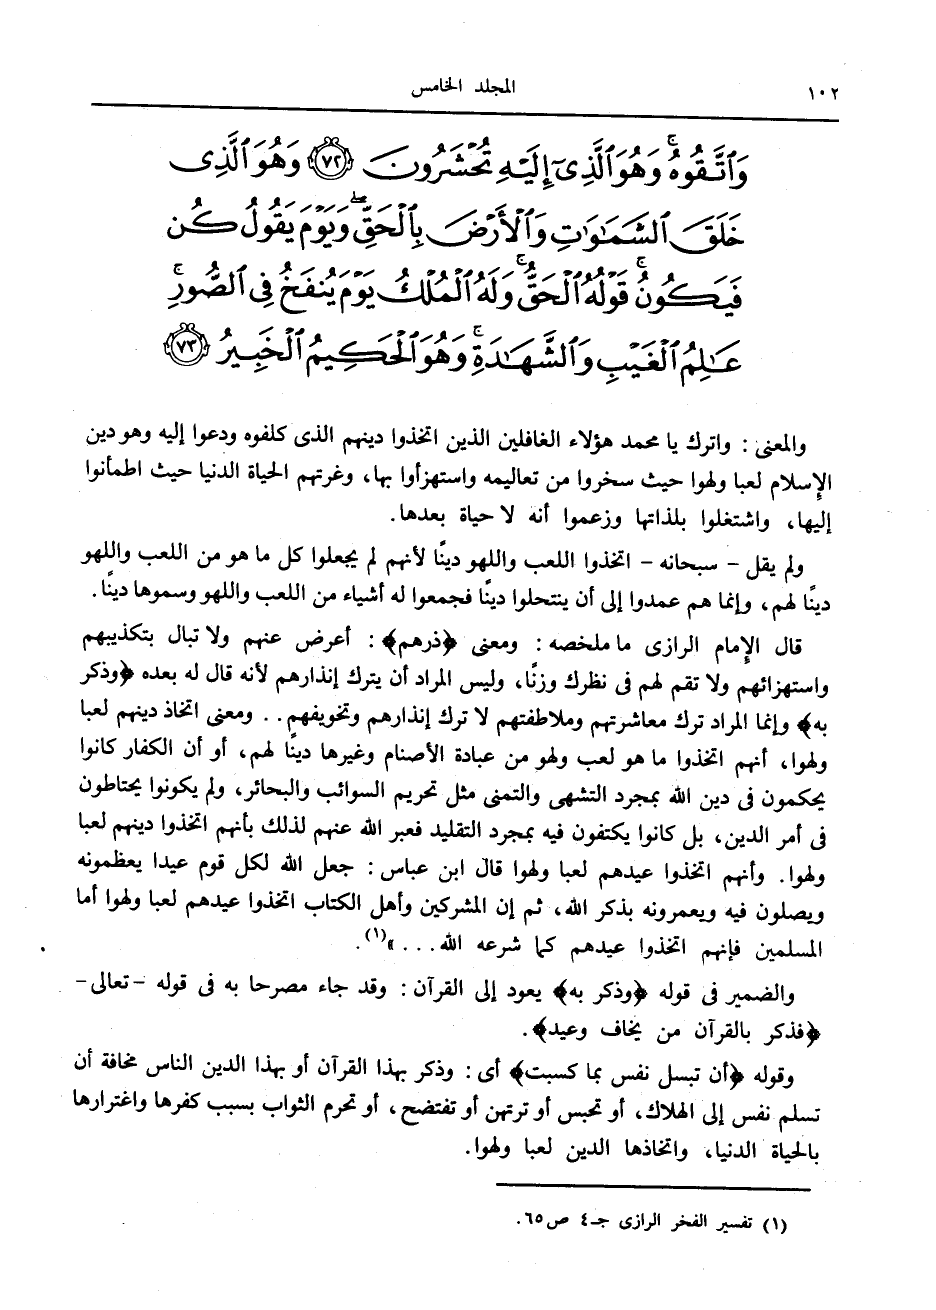 ١٠٢ المجلد الخامس
وَٱتَّقُوهُۚ وَهُوَ ٱلَّذِىٓ إِلَيْهِ تُحْشَرُونَ ﴿٧٢﴾ وَهُوَ ٱلَّذِى
خَلَقَ ٱلسَّمَٰوَٰتِ وَٱلْأَرْضَ بِٱلْحَقِّۖ وَيَوْمَ يَقُولُ كُن
فَيَكُونُۚ قَوْلُهُ ٱلْحَقُّۚ وَلَهُ ٱلْمُلْكُ يَوْمَ يُنفَخُ فِى ٱلصُّورِۚ
عَٰلِمُ ٱلْغَيْبِ وَٱلشَّهَٰدَةِۚ وَهُوَ ٱلْحَكِيمُ ٱلْخَبِيرُ ﴿٧٣﴾
والمعنى : واترك يا محمد هؤلاء الغافلين الذين اتخذوا دينهم الذى كلفوه ودعوا إليه وهو دين
الإسلام لعبا ولهوا حيث سخروا من تعاليمه واستهزأوا بها، وغرتهم الحياة الدنيا حيث اطمأنوا
إليها، واشتغلوا بلذاتها وزعموا أنه لا حياة بعدها.
ولم يقل - سبحانه - اتخذوا اللعب واللهو دينًا لأنهم لم يجعلوا كل ما هو من اللعب واللهو
دينًا لهم، وإنما هم عمدوا إلى أن ينتحلوا دينًا فجمعوا له أشياء من اللعب واللهو وسموها دينًا.
قال الإمام الرازى ما ملخصه : ومعنى ﴿ذرهم﴾ : أعرض عنهم ولا تبال بتكذيبهم
واستهزائهم ولا تقم لهم فى نظرك وزنًا، وليس المراد أن يترك إنذارهم لأنه قال له بعده ﴿وذكر
به﴾ وإنما المراد ترك معاشرتهم وملاطفتهم لا ترك إنذارهم وتخويفهم .. ومعنى اتخاذ دينهم لعبا
ولهوا، أنهم اتخذوا ما هو لعب ولهو من عبادة الأصنام وغيرها دينًا لهم، أو أن الكفار كانوا
يحكمون فى دين الله بمجرد التشهى والتمنى مثل تحريم السوائب والبحائر، ولم يكونوا يحتاطون
فى أمر الدين، بل كانوا يكتفون فيه بمجرد التقليد فعبر الله عنهم لذلك بأنهم اتخذوا دينهم لعبا
ولهوا. وأنهم اتخذوا عيدهم لعبا ولهوا قال ابن عباس : جعل الله لكل قوم عيدا يعظمونه
ويصلون فيه ويعمرونه بذكر الله، ثم إن المشركين وأهل الكتاب اتخذوا عيدهم لعبا ولهوا أما
المسلمين فإنهم اتخذوا عيدهم كما شرعه الله ... »(١).
والضمير فى قوله ﴿وذكر به﴾ يعود إلى القرآن : وقد جاء مصرحا به فى قوله - تعالى -
﴿فذكر بالقرآن من يخاف وعيد﴾.
وقوله ﴿أن تبسل نفس بما كسبت﴾ أى : وذكر بهذا القرآن أو بهذا الدين الناس مخافة أن
تسلم نفس إلى الهلاك، أو تحبس أو ترتهن أو تفتضح، أو تحرم الثواب بسبب كفرها واغترارها
بالحياة الدنيا، واتخاذها الدين لعبا ولهوا.
(١) تفسير الفخر الرازى جـ٤ ص٦٥.